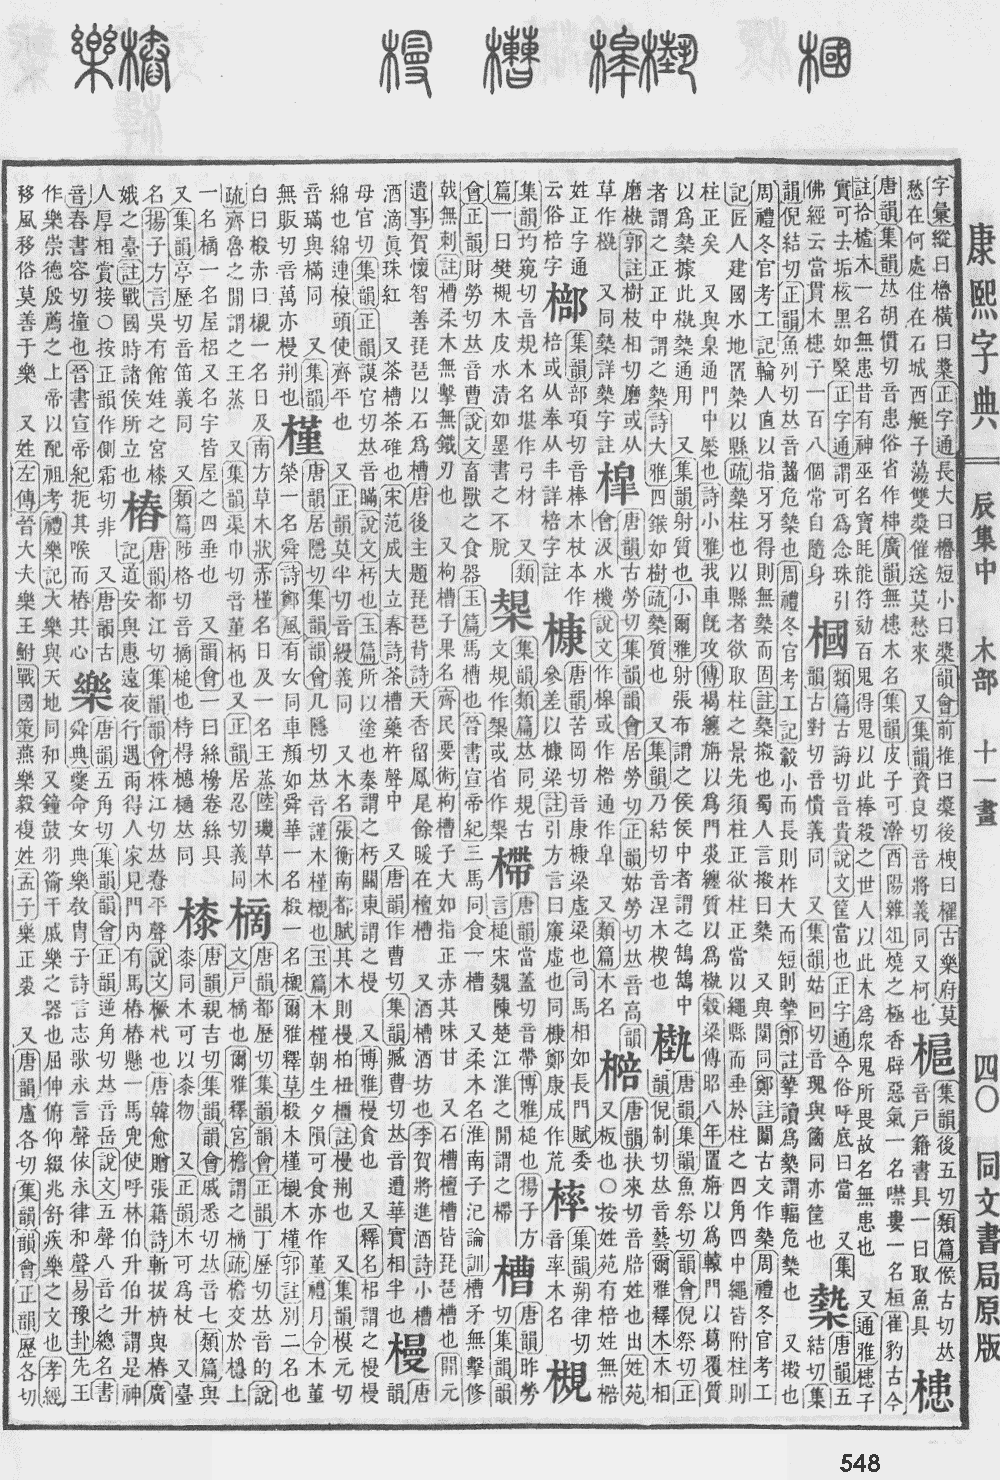 康熙字典 辰集中 木部 十一畫 四〇 同文書局原版
字彙縱曰櫓橫曰槳正字通長大曰櫓短小曰槳韻會前推曰槳後曳曰櫂古樂府莫
愁在何處住在石城西艇子蕩雙槳催送莫愁來 又集韻資良切音將義同又柯也
槴
集韻後五切類篇侯古切𠀤
音戸籍書具一曰取魚具
槵
唐韻集韻𠀤胡慣切音患俗省作槵廣韻無槵木名集韻皮子可澣酉陽雜俎燒之極香辟惡氣一名噤婁一名桓崔豹古今
註拾櫨木一名無患昔有神巫名寶眊能符劾百鬼得鬼以此棒殺之世人以此木爲衆鬼所畏故名無患也 又通雅槵子
實可去垢核黑如瑿正字通謂可爲念珠引
佛經云當貫木槵子一百八個常自隨身
槶
類篇古誨切音貴說文筐當也正字通今俗呼底曰當 又集
韻古對切音憒義同 又集韻姑回切音瑰與簂同亦筐也
槷
唐韻五
結切集
韻倪結切正韻魚列切𠀤音齧危槷也周禮冬官考工記轂小而長則柞大而短則摯鄭註摯讀爲槷謂輻危槷也 又㨷也
周禮冬官考工記輪人直以指牙牙得則無槷而固註槷㨷也蜀人言㨷曰槷 又與闑同鄭註闑古文作槷周禮冬官考工
記匠人建國水地置槷以縣疏槷柱也以縣者欲取柱之景先須柱正欲柱正當以繩縣而垂於柱之四角四中繩皆附柱則
柱正矣 又與臬通門中橜也詩小雅我車旣攻傳褐纏旃以爲門裘纏質以爲槸穀梁傳昭八年置旃以爲轅門以葛覆質
以爲槷據此槸槷通用 又集韻射質也小爾雅射張布謂之侯侯中者謂之鵠鵠中
者謂之正正中謂之槷詩大雅四鍭如樹疏槷質也 又集韻乃結切音涅木楔也
槸
唐韻集韻魚祭切韻會倪祭切正
韻倪制切𠀤音藝爾雅釋木木相
磨槸郭註樹枝相切磨或从
草作 又同槷詳槷字註
槹
唐韻古勞切集韻韻會居勞切正韻姑勞切𠀤音高韻
會汲水機說文作橰或作通作皐 又類篇木名
唐韻扶來切音陪姓也出姓苑
又板也○按姓苑有棓姓無
姓正字通
云俗棓字
集韻部項切音棒木杖本作
棓或从奉从丰詳棓字註
槺
唐韻苦岡切集韻丘岡切𠀤音康槺梁虛梁也司馬相如長門賦委
參差以槺梁註引方言曰㝩虛也同槺鄭康成作荒
集韻朔律切
音率木名
槻
集韻均窺切音規木名堪作弓材 又類
篇一曰樊槻木皮水清如墨書之不脫
槼
集韻類篇𠀤同規古
文規作槼或省作
唐韻當蓋切音帶博雅槌也揚子方
言槌宋魏陳楚江淮之閒謂之
槽
唐韻昨勞
切集韻韻
會正韻財勞切𠀤音曹說文畜獸之食器玉篇馬槽也晉書宣帝紀三馬同食一槽 又柔木名淮南子氾論訓槽矛無擊修
戟無刺註槽柔木無擊無鐵刃也 又枸槽子果名齊民要術枸槽子大如指正赤其味甘 又石槽檀槽皆琵琶槽也開元
遺事賀懷智善琵琶以石爲槽唐後主題琵琶背詩天香留鳳尾餘暖在檀槽 又酒槽酒坊也李賀將進酒詩小槽
酒滴眞珠紅 又茶槽茶碓也宋范成大立春詩茶槽藥杵聲中 又唐韻作曹切集韻臧曹切𠀤音遭華實相半也
槾
唐
韻
母官切集韻正韻謨官切𠀤音瞞說文杇也玉篇所以塗也秦謂之杇關東謂之槾 又博雅槾貪也 又釋名梠謂之槾槾
綿也綿連榱頭使齊平也 又正韻莫半切音縵義同 又木名張衡南都賦其木則槾柏杻橿註槾荆也 又集韻模元切
音璊與樠同 又集韻
無販切音萬亦槾荆也
槿
唐韻居隱切集韻韻會几隱切𠀤音謹木槿櫬也玉篇木槿朝生夕隕可食亦作菫禮月令木菫
榮一名舜詩鄭風有女同車顏如舜華一名椴一名櫬爾雅釋草椴木槿櫬木槿郭註別二名也
白曰椴赤曰櫬一名日及南方草木狀赤槿名日及一名王蒸陸璣草木
疏齊魯之閒謂之王蒸 又集韻渠巾切音菫柄也又正韻居忍切義同
樀
唐韻都歷切集韻韻會正韻丁歷切𠀤音的說
文戸樀也爾雅釋宮檐謂之樀疏檐交於櫋上
一名樀一名屋梠又名宇皆屋之四垂也 又韻會一曰絲卷絲具
又集韻亭歷切音笛義同 又類篇陟格切音摘槌也𠀤同
唐韻親吉切集韻韻會戚悉切𠀤音七類篇與
桼同木可以桼物 又正韻木可爲杖 又臺
名揚子方言吳有館娃之宮
娥之臺註戰國時諸侯所立也
樁
唐韻都江切集韻韻會株江切𠀤平聲說文橛杙也唐韓愈贈張籍詩斬拔枿與樁廣
記道安與惠遠夜行遇雨得人家見門內有馬樁樁懸一馬兜使呼林伯升伯升謂是神
人厚相賞接○按正韻作側霜切非 又唐韻古
音舂書容切撞也晉書宣帝紀扼其喉而樁其心
樂
唐韻五角切集韻韻會正韻逆角切𠀤音岳說文五聲八音之總名書
舜典夔命女典樂敎冑子詩言志歌永言聲依永律和聲易豫卦先王
作樂崇德殷薦之上帝以配祖考禮樂記大樂與天地同和又鐘鼓羽籥干戚樂之器也屈伸俯仰綴兆舒疾樂之文也孝經
移風移俗莫善于樂 又姓左傳晉大夫樂王鮒戰國策燕樂毅複姓孟子樂正裘 又唐韻盧各切集韻韻會正韻歷各切
548